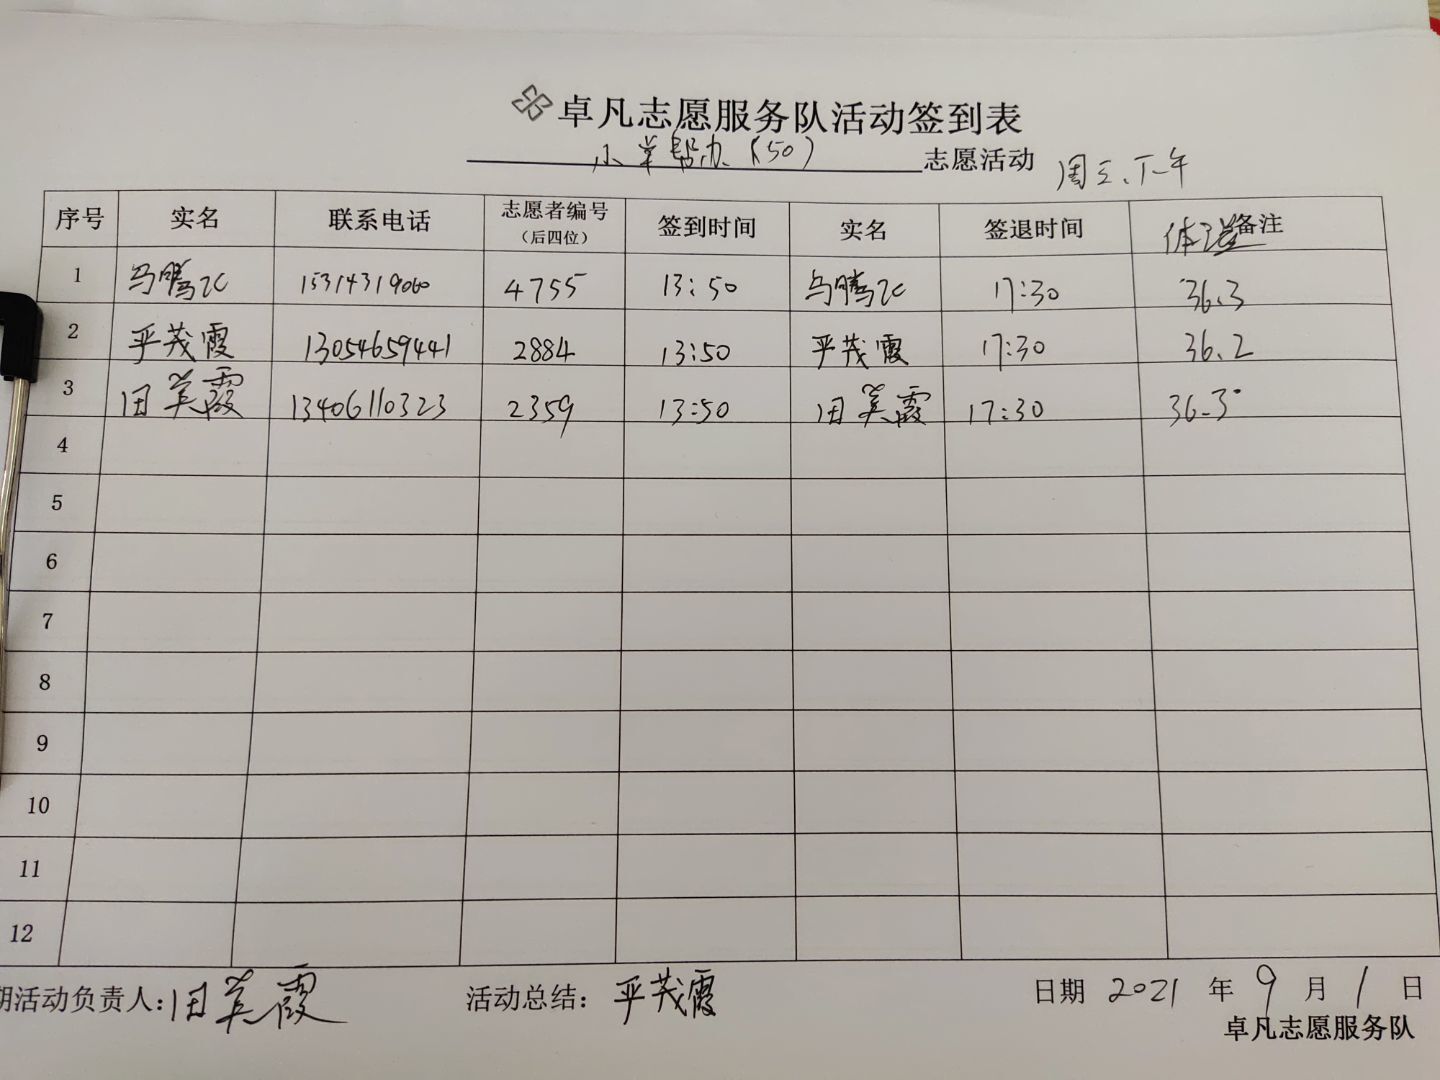 卓凡志愿服务队活动签到表
小羊帮办(50) 志愿活动 周三、下午
序号 实名 联系电话 志愿者编号（后四位） 签到时间 实名 签退时间 体温 备注
1 马腾飞 15314319060 4755 13:50 马腾飞 17:30 36.3
2 严茂霞 13054659441 2884 13:50 严茂霞 17:30 36.2
3 田美霞 13406110323 2359 13:50 田美霞 17:30 36.3°
4
5
6
7
8
9
10
11
12
期活动负责人：田美霞 活动总结：严茂霞 日期 2021 年 9 月 1 日
卓凡志愿服务队